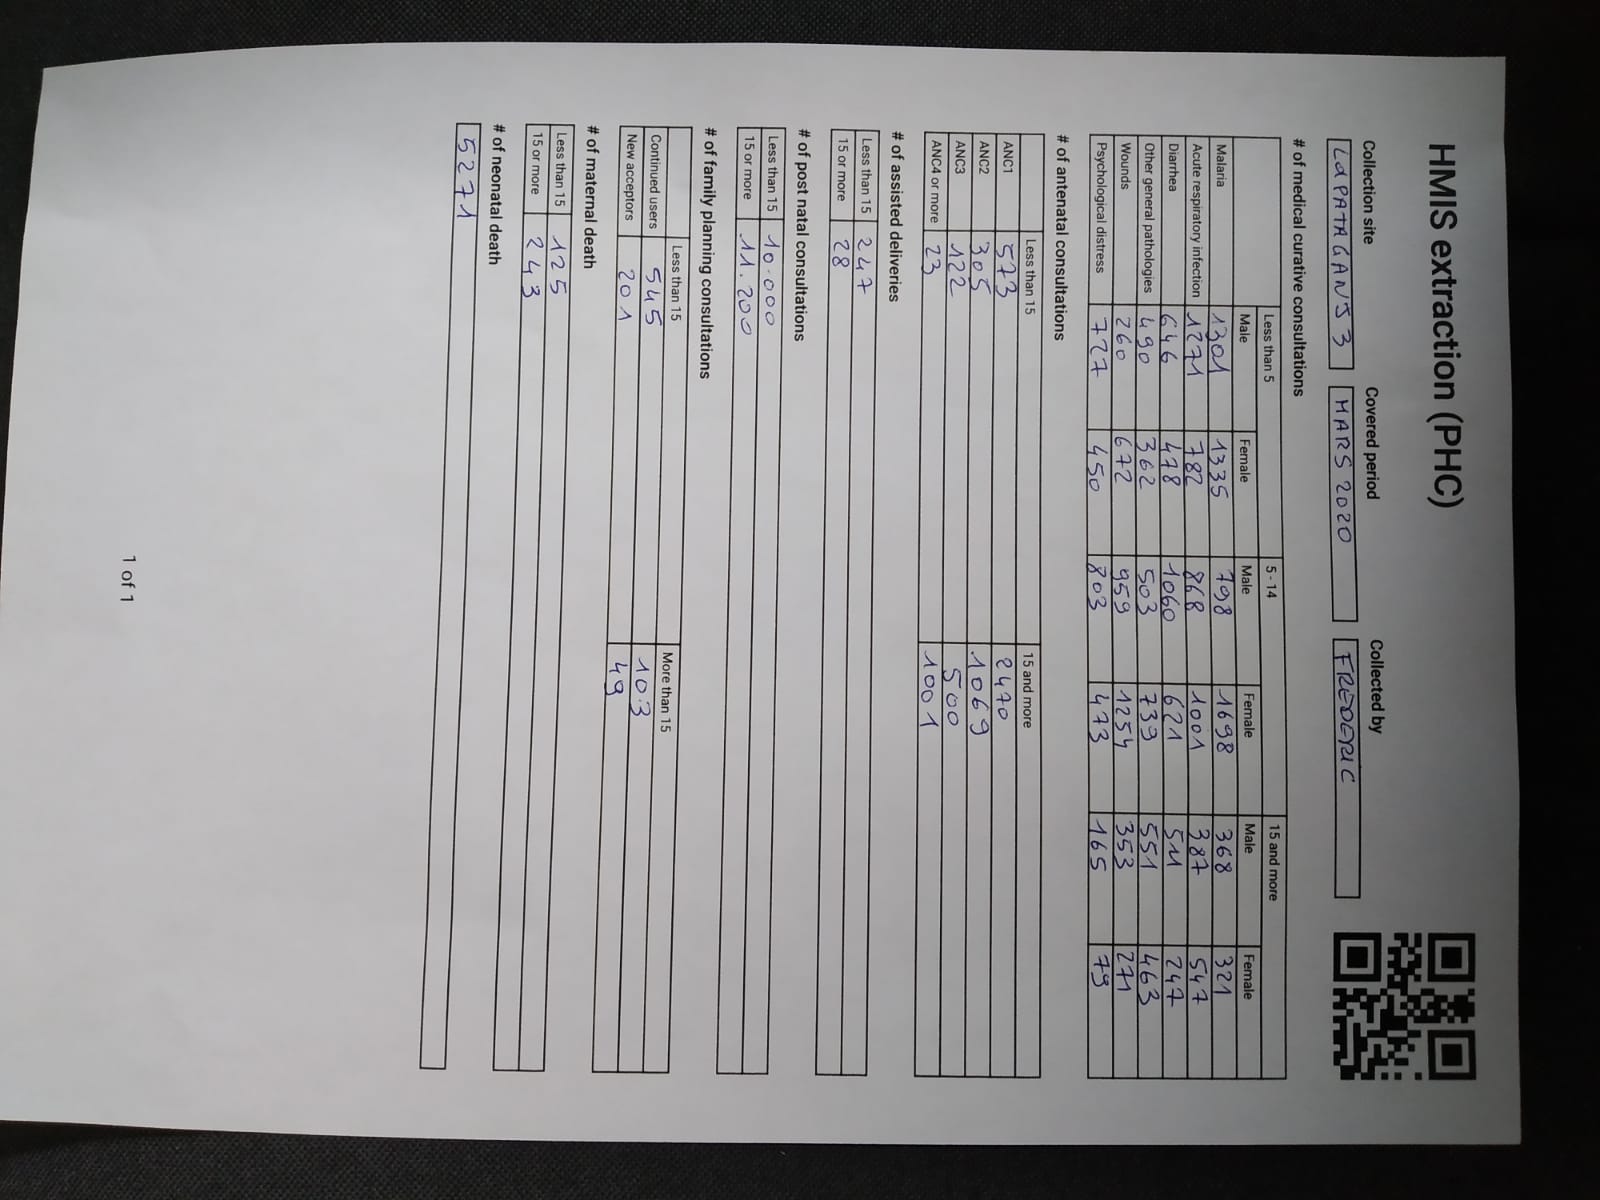 HMIS extraction (PHC)
Collection site Covered period Collected by
LA PATAGANS 3 MARS 2020 FREDERIC
# of medical curative consultations
Less than 5 5 - 14 15 and more
Male Female Male Female Male Female
Malaria 1301 1335 798 1698 368 321
Acute respiratory infection 1271 782 868 1001 387 547
Diarrhea 646 478 1060 621 511 247
Other general pathologies 490 362 503 739 551 463
Wounds 260 672 959 1254 353 271
Psychological distress 727 450 803 473 165 79
# of antenatal consultations
Less than 15 15 and more
ANC1 573 2470
ANC2 305 1069
ANC3 122 500
ANC4 or more 23 1001
# of assisted deliveries
Less than 15 247
15 or more 28
# of post natal consultations
Less than 15 10.000
15 or more 11.200
# of family planning consultations
Less than 15 More than 15
Continued users 545 103
New acceptors 201 49
# of maternal death
Less than 15 125
15 or more 243
# of neonatal death
5271
1 of 1